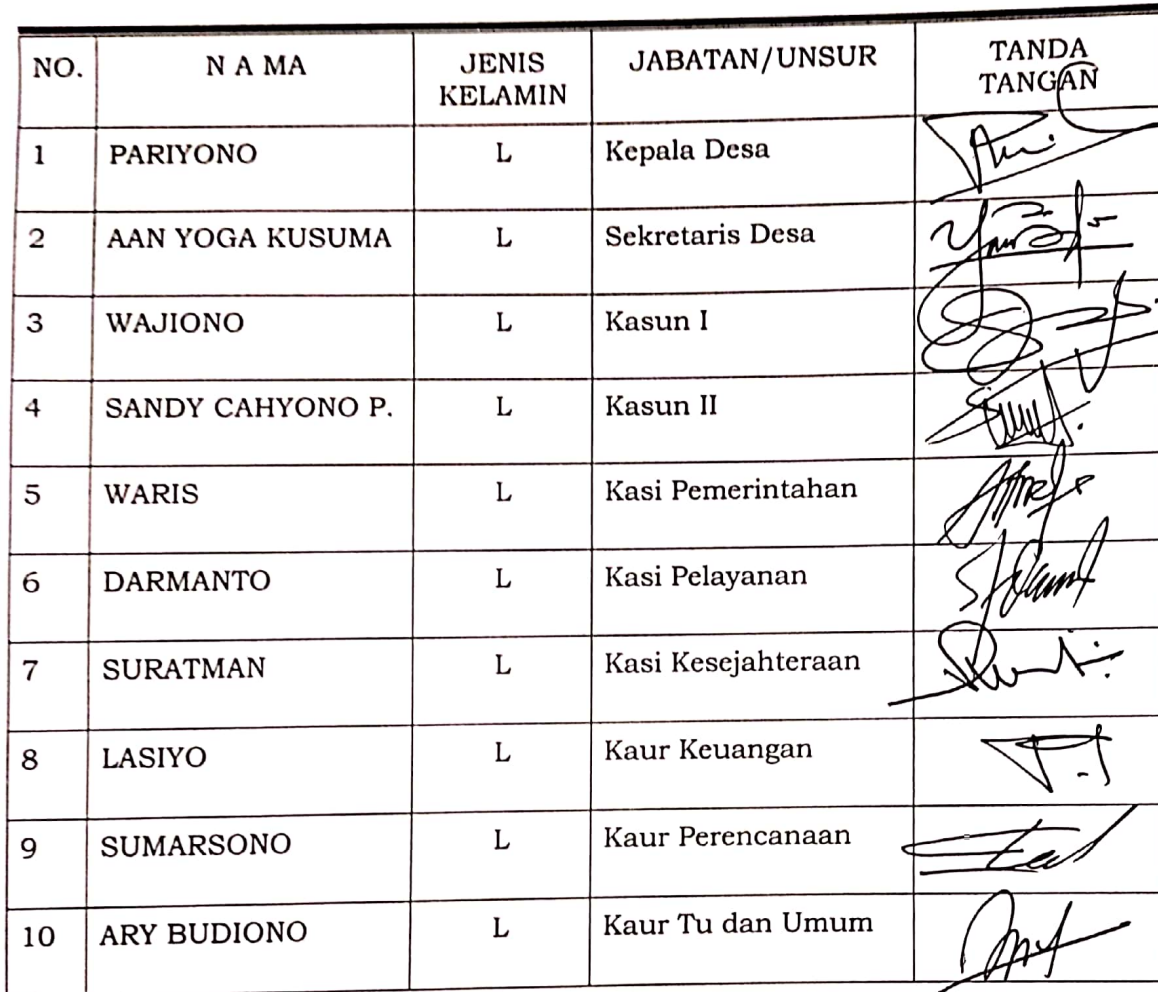 NO. N A MA JENIS KELAMIN JABATAN/UNSUR TANDA TANGAN
1 PARIYONO L Kepala Desa
2 AAN YOGA KUSUMA L Sekretaris Desa
3 WAJIONO L Kasun I
4 SANDY CAHYONO P. L Kasun II
5 WARIS L Kasi Pemerintahan
6 DARMANTO L Kasi Pelayanan
7 SURATMAN L Kasi Kesejahteraan
8 LASIYO L Kaur Keuangan
9 SUMARSONO L Kaur Perencanaan
10 ARY BUDIONO L Kaur Tu dan Umum